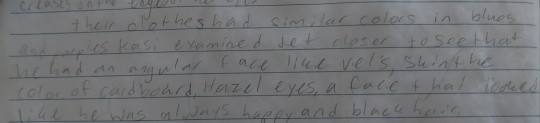 creases on the
their clothes had similar colors in blues
and purples Kasi examined Jet closer to see that
he had an angular face like vel's, skin the
color of cardboard, Hazel eyes, a face that looked
like he was always happy and black hair.